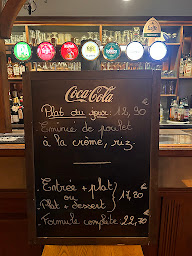 Coca-Cola
Plat du jour: 12,90 €
Emincé de poulet
à la crème, riz.
- Entrée + plat
ou
- Plat + dessert
17,90 €
Formule complète: 22,70 €